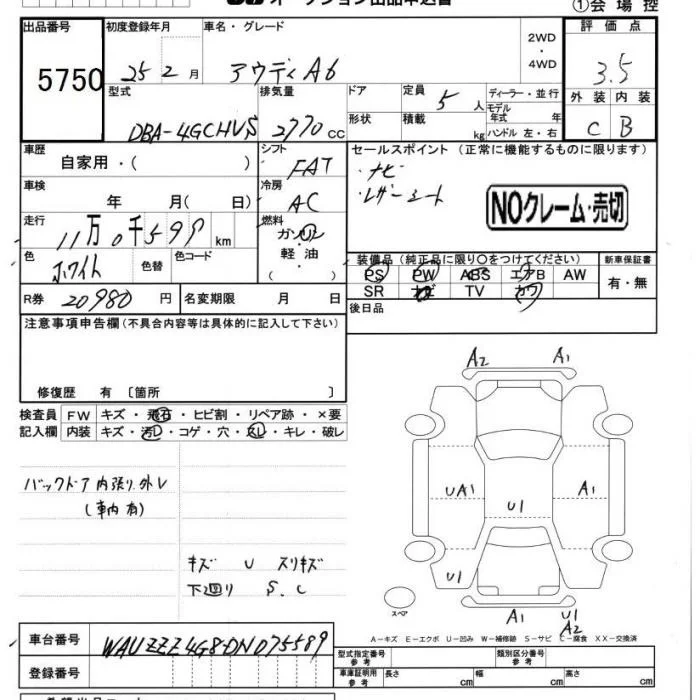 オークション出品申込書
①会場控
出品番号
初度登録年月
車名・グレード
2WD
・
4WD
評価点
5750
25 2 月
アウディA6
3.5
型式
排気量
ドア
定員
5 人
ディーラー・並行
外装 内装
DBA-4GCHVS
2770 cc
形状
積載
kg
モデル年式 年
ハンドル 左・右
C B
車歴
自家用・( )
シフト
FAT
セールスポイント (正常に機能するものに限ります)
・ナビ
・レザーシート
車検
年 月( 日)
冷房
AC
NOクレーム・売切
走行
11万0千599 km
燃料
ガソリン
軽油
( )
色
ホワイト
色替
色コード
装備品(純正品に限り○をつけてください)
新車保証書
PS PW ABS エアB AW
有・無
SR ナビ TV カワ
R券 20980 円
名変期限 月 日
後日品
注意事項申告欄(不具合内容等は具体的に記入して下さい)
修復歴 有 〔箇所 〕
検査員
記入欄
FW キズ・飛石・ヒビ割・リペア跡・×要
内装 キズ・汚レ・コゲ・穴・スレ・キレ・破レ
バックドア内張り外レ
(車内有)
キズ U スリキズ
下廻り S.C
A2 A1
UA1 U1 A1
U1
スペア
A1 U1
A2
A-キズ E-エクボ U-凹み W-補修跡 S-サビ C-腐食 XX-交換済
車台番号
WAUZZZ4G8DN075589
登録番号
型式指定番号
参考
類別区分番号
参考
車庫証明用
参考
長さ cm 幅 cm 高さ cm